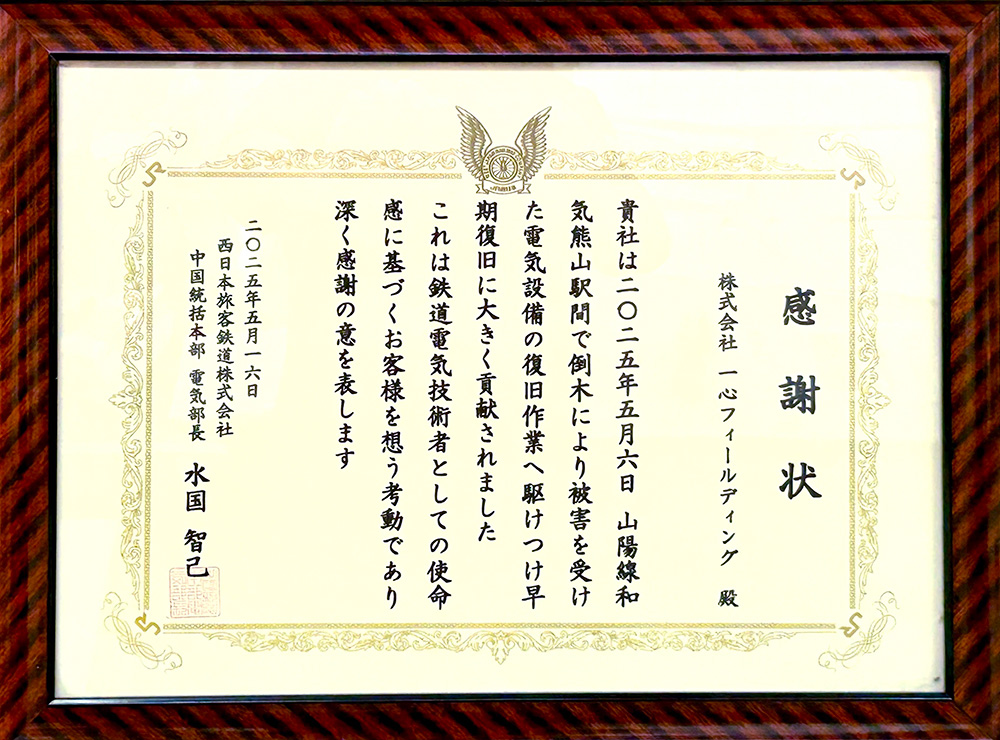 感謝状
株式会社 一心フィールディング 殿
貴社は二〇二五年五月六日 山陽線和
気熊山駅間で倒木により被害を受け
た電気設備の復旧作業へ駆けつけ早
期復旧に大きく貢献されました
これは鉄道電気技術者としての使命
感に基づくお客様を想う考動であり
深く感謝の意を表します
二〇二五年五月一六日
西日本旅客鉄道株式会社
中国統括本部 電気部長 水国 智己